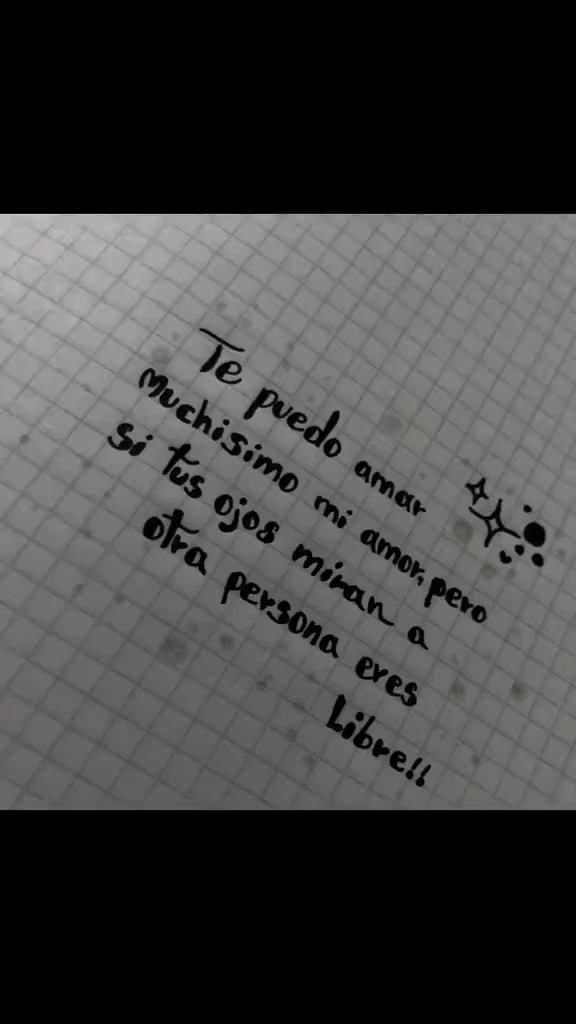 Te puedo amar
muchisimo mi amor, pero
si tus ojos miran a
otra persona eres
Libre!!